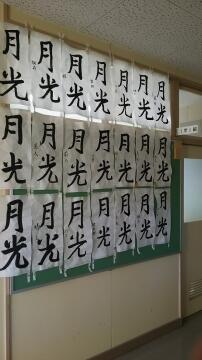 月光 月光 月光 月光 月光 月光 月光
月光 月光 月光 月光 月光 月光 月光
月光 月光 月光 月光 月光 月光 月光